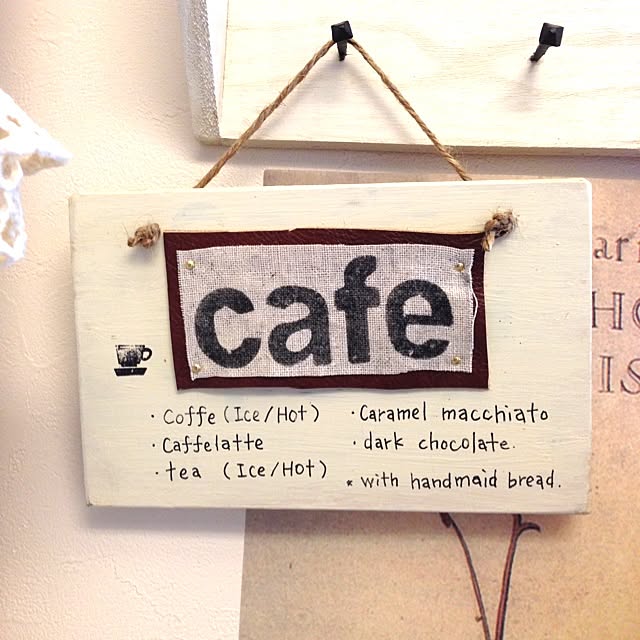 cafe
· Coffe (Ice/Hot)
· Caffelatte
· tea (Ice/Hot)
· Caramel macchiato
· dark chocolate.
* with handmaid bread.
IS